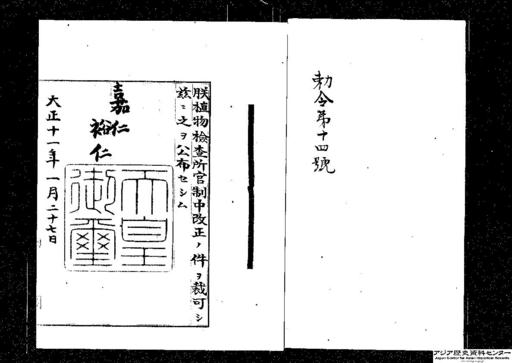 勅令第十四號
朕植物檢査所官制中改正ノ件ヲ裁可シ
玆ニ之ヲ公布セシム
嘉仁
裕仁
天皇
御璽
大正十一年一月二十七日
アジア歴史資料センター
Japan Center for Asian Historical Records